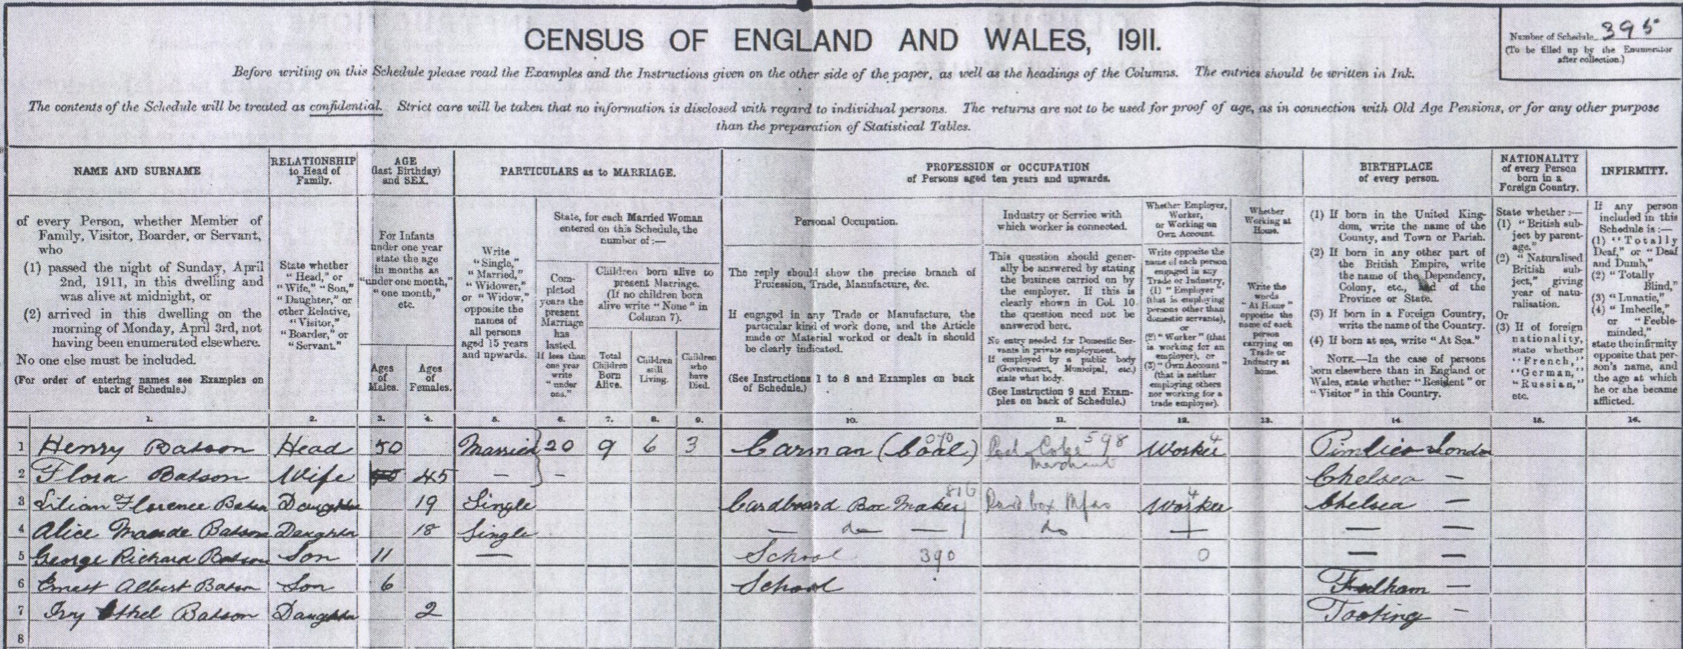 CENSUS OF ENGLAND AND WALES, 1911.
Number of Schedule 395
(To be filled up by the Enumerator after collection.)
Before writing on this Schedule please read the Examples and the Instructions given on the other side of the paper, as well as the headings of the Columns. The entries should be written in Ink.
The contents of the Schedule will be treated as confidential. Strict care will be taken that no information is disclosed with regard to individual persons. The returns are not to be used for proof of age, as in connection with Old Age Pensions, or for any other purpose
than the preparation of Statistical Tables.
NAME AND SURNAME
of every Person, whether Member of
Family, Visitor, Boarder, or Servant,
who
(1) passed the night of Sunday, April
2nd, 1911, in this dwelling and
was alive at midnight, or
(2) arrived in this dwelling on the
morning of Monday, April 3rd, not
having been enumerated elsewhere.
No one else must be included.
(For order of entering names see Examples on
back of Schedule.)
RELATIONSHIP
to Head of
Family.
State whether
"Head," or
"Wife," "Son,"
"Daughter," or
other Relative,
"Visitor,"
"Boarder," or
"Servant."
AGE
(last Birthday)
and SEX.
For Infants
under one year
state the age
in months as
"under one month,"
"one month,"
etc.
Ages
of
Males.
Ages
of
Females.
PARTICULARS as to MARRIAGE.
Write
"Single,"
"Married,"
"Widower,"
or "Widow,"
opposite the
names of
all persons
aged 15 years
and upwards.
State, for each Married Woman
entered on this Schedule, the
number of:—
Completed
years the
present
Marriage
has
lasted.
If less than
one year
write
"under
one."
Children born alive to
present Marriage.
(If no children born
alive write "None" in
Column 7).
Total
Children
Born
Alive.
Children
still
Living.
Children
who
have
Died.
PROFESSION or OCCUPATION
of Persons aged ten years and upwards.
Personal Occupation.
The reply should show the precise branch of
Profession, Trade, Manufacture, &c.
If engaged in any Trade or Manufacture, the
particular kind of work done, and the Article
made or Material worked or dealt in should
be clearly indicated.
(See Instructions 1 to 8 and Examples on back
of Schedule.)
Industry or Service with
which worker is connected.
This question should generally
be answered by stating
the business carried on by
the employer. If this is
clearly shown in Col. 10
the question need not be
answered here.
No entry needed for Domestic Servants
in private employment.
If employed by a public body
(Government, Municipal, etc.)
state what body.
(See Instruction 9 and Examples
on back of Schedule.)
Whether Employer,
Worker,
or Working on
Own Account.
Write opposite the
name of each person
engaged in any
Trade or Industry,
(1) "Employer"
(that is employing
persons other than
domestic servants),
or
(2) "Worker" (that
is working for an
employer), or
(3) "Own Account"
(that is neither
employing others
nor working for a
trade employer).
Whether
Working at
Home.
Write the
words
"At Home"
opposite the
name of each
person
carrying on
Trade or
Industry at
home.
BIRTHPLACE
of every person.
(1) If born in the United Kingdom,
write the name of the
County, and Town or Parish.
(2) If born in any other part of
the British Empire, write
the name of the Dependency,
Colony, etc., and of the
Province or State.
(3) If born in a Foreign Country,
write the name of the Country.
(4) If born at sea, write "At Sea."
NOTE.—In the case of persons
born elsewhere than in England or
Wales, state whether "Resident" or
"Visitor" in this Country.
NATIONALITY
of every Person
born in a
Foreign Country.
State whether:—
(1) "British subject
by parentage."
(2) "Naturalised
British subject,"
giving
year of naturalisation.
Or
(3) If of foreign
nationality,
state whether
"French,"
"German,"
"Russian,"
etc.
INFIRMITY.
If any person
included in this
Schedule is:—
(1) "Totally
Deaf," or "Deaf
and Dumb,"
(2) "Totally
Blind,"
(3) "Lunatic,"
(4) "Imbecile,"
or "Feeble-minded,"
state the infirmity
opposite that person's
name, and
the age at which
he or she became
afflicted.
1. 2. 3. 4. 5. 6. 7. 8. 9. 10. 11. 12. 13. 14. 15. 16.
1 Henry Batson Head 50 Married 20 9 6 3 Carman (Coal) Coal Coke Merchant 598 Worker 4 Pimlico London
2 Flora Batson Wife 45 — — Chelsea —
3 Lilian Florence Batson Daughter 19 Single Cardboard Box Maker 816 Card box Mfrs Worker 4 Chelsea —
4 Alice Maude Batson Daughter 18 Single — do — do — — —
5 George Richard Batson Son 11 — School 390 0 — —
6 Ernest Albert Batson Son 6 School Fulham —
7 Ivy Ethel Batson Daughter 2 Tooting —
8